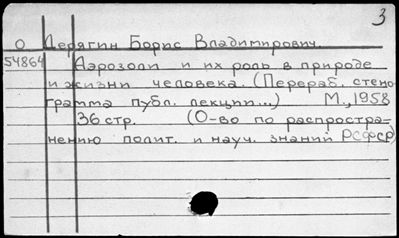 3
О Дерягин Борис Владимирович.
54864 Аэрозоли и их роль в природе
и жизни человека. (Перераб. стено-
грамма публ. лекции...) М., 1958
36 стр. (О-во по распростра-
нению полит. и науч. знаний РСФСР)